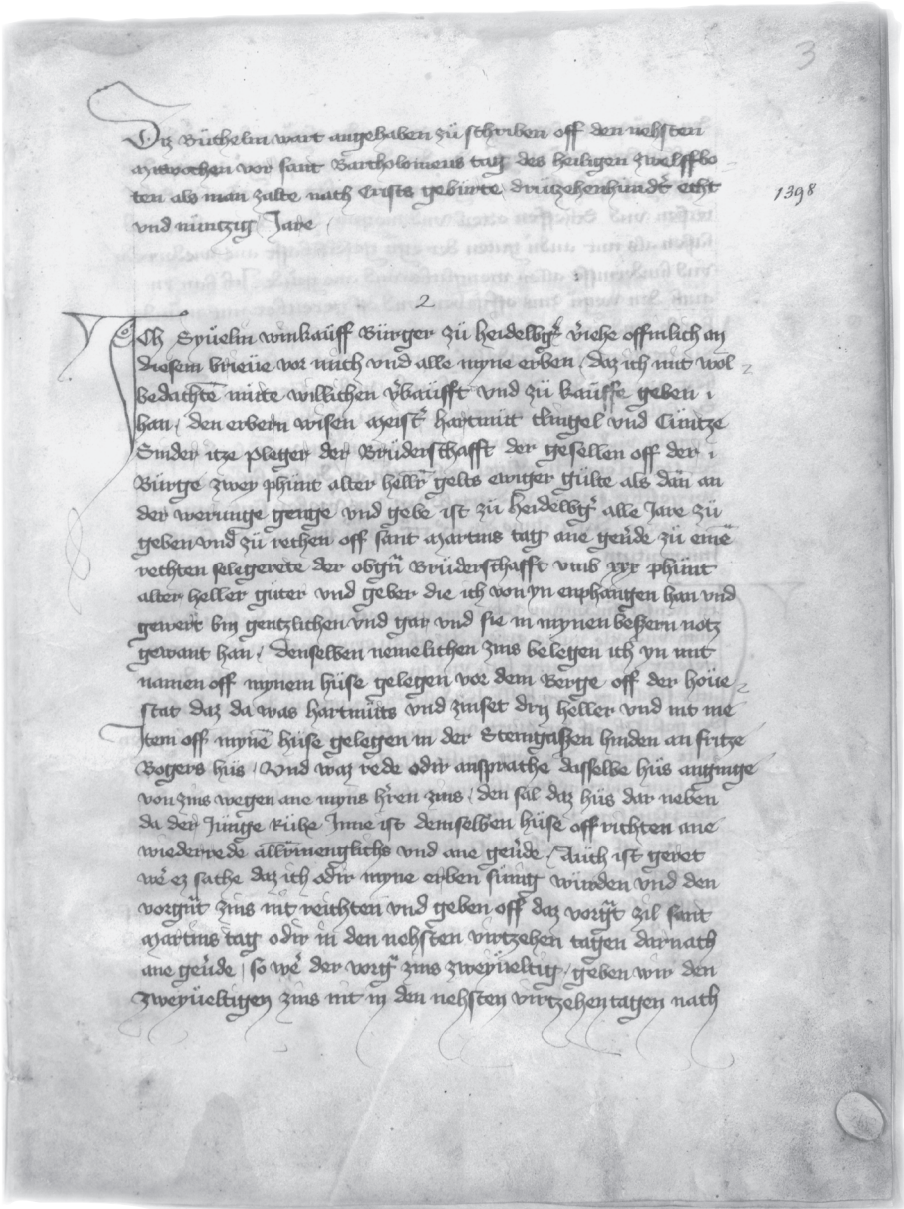 3
Diz Büchelin wart angehaben zü schriben off den nehsten
mitwochen vor sant Bartholomeus tag des heiligen zwelffbo
ten als man zalte nach Crists gebürte drützehenhundt echt
und nüntzig Jare
1398
2
Ich Syuelin winkaüff Bürger zü Heidelbg v̾iehe offinlich an
diesem brieue vor mich vnd alle myne erben daz ich mit wol
bedachtē müte willichen v̾kaüfft vnd zü kaüffe geben
han den erbern wisen meist̾ hartmüt clingel vnd Cüntze
Sinder itze pleger der Brüderschafft der gesellen off der
Bürge zwey phünt alter hell̾ gelts ewiger gülte als dan̄ an
der werunge genge vnd gebe ist zü Heidelbg̾ alle Jare zü
geben vnd zü rechen off sant Martins tag ane geu̾de zü eime
rechten selegerete der obgn̄ Brüderschafft vmb xxx phünt
alter heller güter vnd geber die ich von yn enphangen han vnd
gewert bin gentzlichen vnd gar vnd sie in mynen beßern notz
gewant han / denselben nemelichen zins belegen ich yn mit
namen off mynem hüse gelegen vor dem Berge off der hoüe
stat daz da was hartmüts vnd zinset drij heller vnd nit me
Item off mynē hüse gelegen in der Steingaßen hinden an fritze
Bogers hüs / Vnd waz rede odir ansprache dasselbe hüs anginge
von zins wegen ane myns h̾ren zins / den sal daz hüs dar neben
da der Jünge Rühe Inne ist demselben hüse off richten ane
wiederrede allermenglichs vnd ane geu̾de / Auch ist geret
we̾ ez sache daz ich odir myne erben sümig würden vnd den
vorgn̄t zins nit reichten vnd geben off daz vorgn̄t zil sant
Martins tag odir in den nehsten virtzehen tagen darnach
ane geu̾de / so we̾ der vorg̾ zins zweyüeltig / geben wir den
zweyüeltigen zins nit in den nehsten virtzehentagen nach